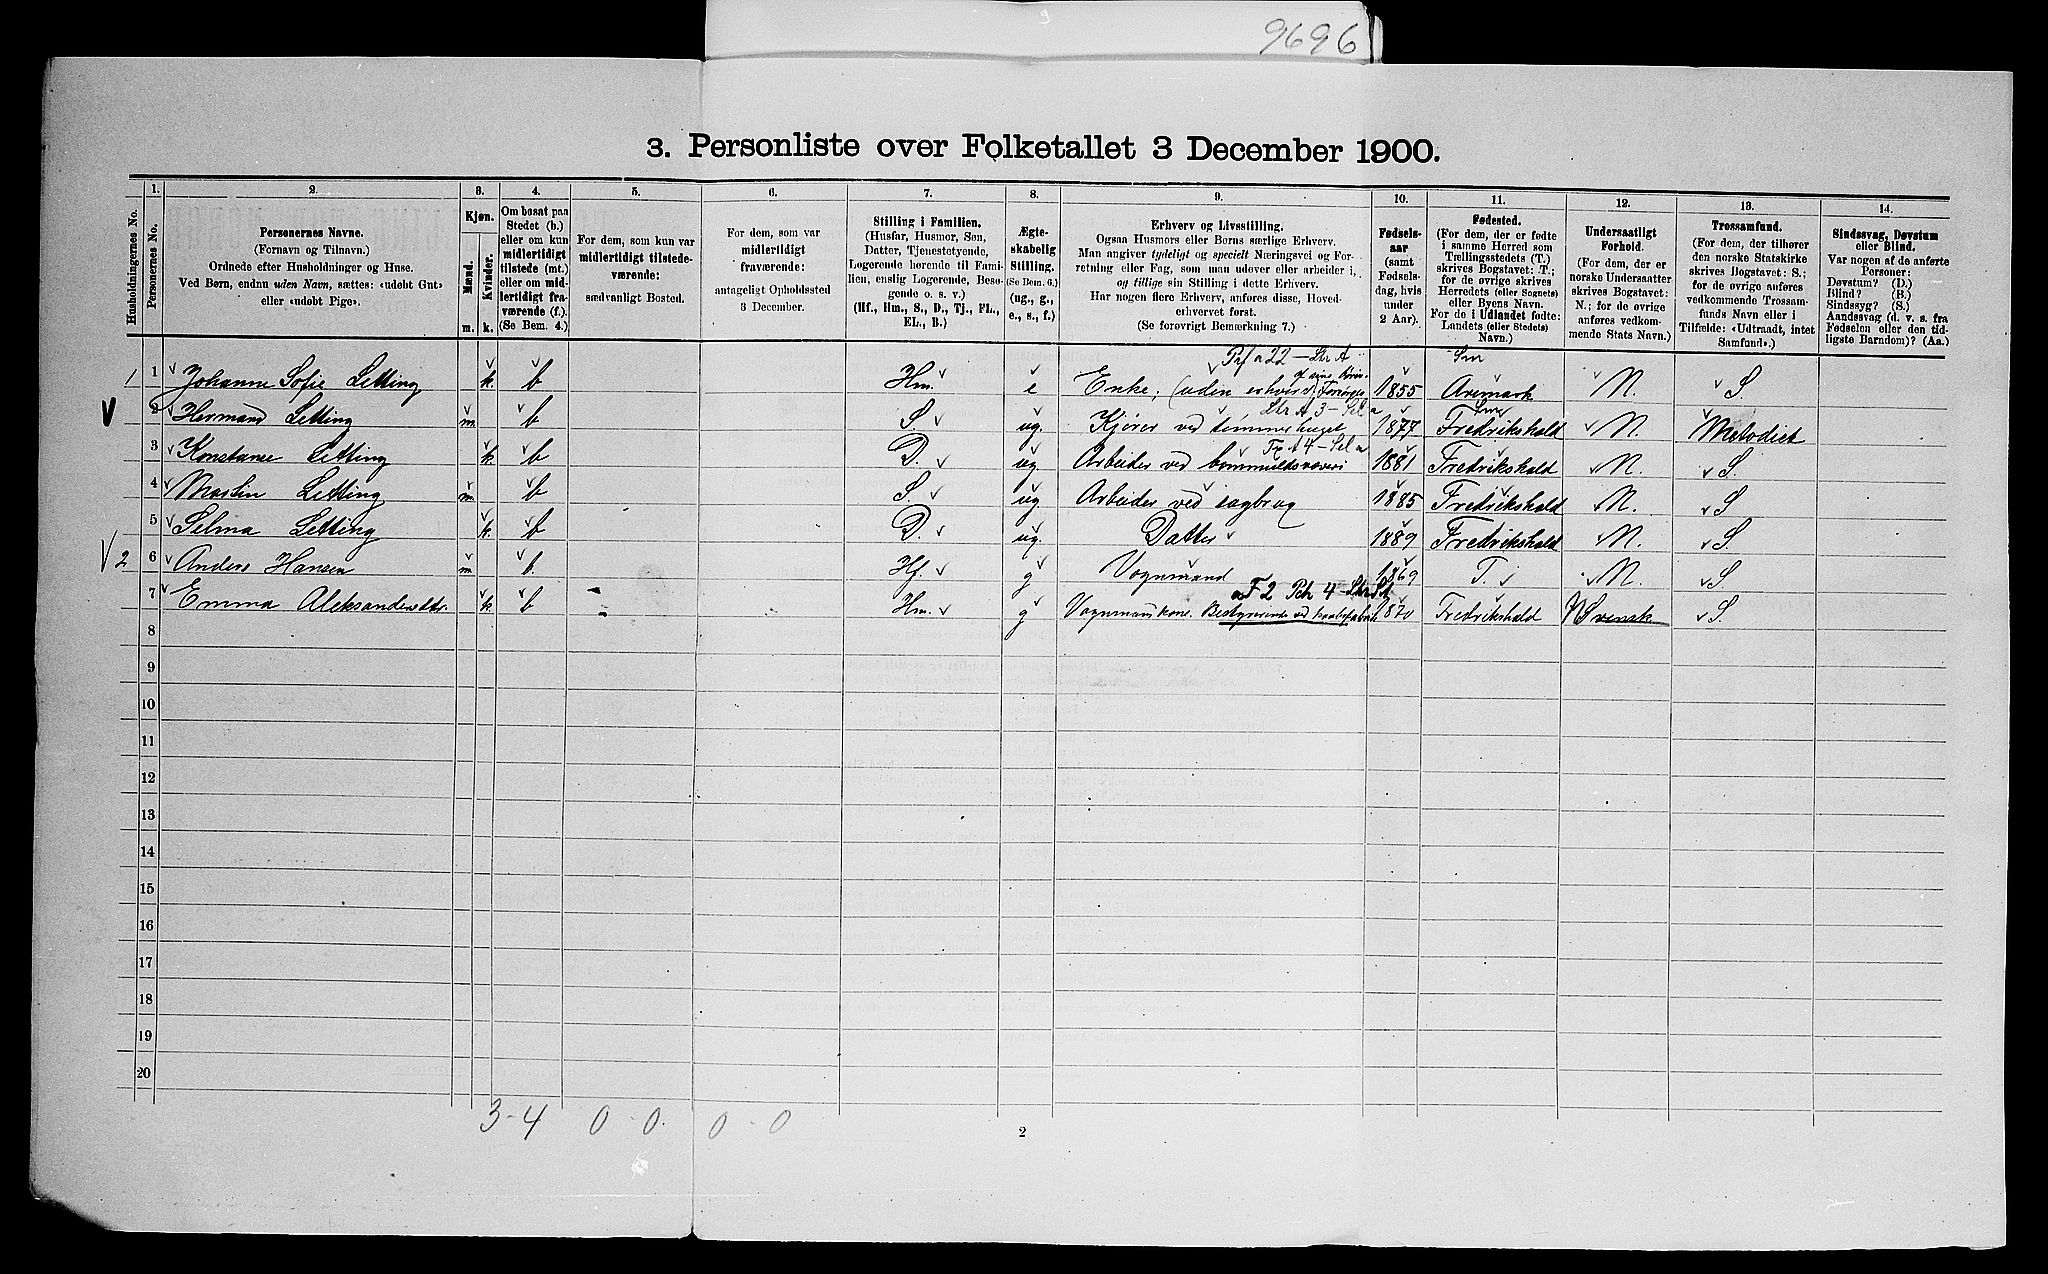 9696
3. Personliste over Folketallet 3 December 1900.
Husholdningernes No.
1.
Personernes No.
2.
Personernes Navne.
(Fornavn og Tilnavn.)
Ordnede efter Husholdninger og Huse.
Ved Børn, endnu uden Navn, sættes: «udøbt Gut»
eller «udøbt Pige».
3.
Kjøn.
Mænd.
Kvinder.
m. k.
4.
Om bosat paa
Stedet (b.)
eller om kun
midlertidigt
tilstede (mt.)
eller om mid-
lertidigt fra-
værende (f.).
(Se Bem. 4.)
5.
For dem, som kun var
midlertidigt tilstede-
værende:
sædvanligt Bosted.
6.
For dem, som var
midlertidigt
fraværende:
antageligt Opholdssted
3 December.
7.
Stilling i Familien.
(Husfar, Husmor, Søn,
Datter, Tjenestetyende,
Logerende hørende til Fami-
lien, enslig Logerende, Besø-
gende o. s. v.)
(Hf., Hm., S., D., Tj., FL.,
EL., B.)
8.
Ægte-
skabelig
Stilling.
(Se Bem. 6.)
(ug., g.,
e., s., f.)
9.
Erhverv og Livsstilling.
Ogsaa Husmors eller Børns særlige Erhverv.
Man angiver tydeligt og specielt Næringsvei og For-
retning eller Fag, som man udøver eller arbeider i,
og tillige sin Stilling i dette Erhverv.
Har nogen flere Erhverv, anføres disse, Hoved-
erhvervet først.
(Se forøvrigt Bemærkning 7.)
10.
Fødsels-
aar
(samt
Fødsels-
dag, hvis
under
2 Aar).
11.
Fødested.
(For dem, der er fødte
i samme Herred som
Tællingsstedets (T.)
skrives Bogstavet: T.;
for de øvrige skrives
Herredets (eller Sognets)
eller Byens Navn.
For de i Udlandet fødte:
Landets (eller Stedets)
Navn.)
12.
Undersaatligt
Forhold.
(For dem, der er
norske Undersaatter
skrives Bogstavet:
N.; for de øvrige
anføres vedkom-
mende Stats Navn.)
13.
Trossamfund.
(For dem, der tilhører
den norske Statskirke
skrives Bogstavet: S.;
for de øvrige anføres
vedkommende Trossam-
funds Navn eller i
Tilfælde: «Udtraadt, intet
Samfund».)
14.
Sindssvag, Døvstum
eller Blind.
Var nogen af de anførte
Personer:
Døvstum? (D.)
Blind? (B.)
Sindssyg? (S.)
Aandssvag (d. v. s. fra
Fødselen eller den tid-
ligste Barndom)? (Aa.)
1 1 Johanne Sofie Letting k. b Hm. e Enke; (uden erhverv) Forsørges af sine Børn 1855 Aremark N. S.
2 Herman Letting m. b S ug. Kjører ved tømmerhuget 1877 Fredrikshald N. Metodist
3 Konstanse Letting k. b D. ug. Arbeider ved bommuldsvæveri 1881 Fredrikshald N. S.
4 Martin Letting m. b S ug. Arbeider ved sagbrug 1885 Fredrikshald N. S
5 Selma Letting k. b D. ug. Datter 1889 Fredrikshald N. S.
2 6 Anders Hansen m. b. Hf. g Vognmand 1869 T. N. S
7 Emma Aleksandersdtr. k. b Hm. g Vognmans kone. Bestyrerinde ved 1870 Fredrikshald N Svensk S.
8
9
10
11
12
13
14
15
16
17
18
19
20
3-4 0-0. 0-0
2